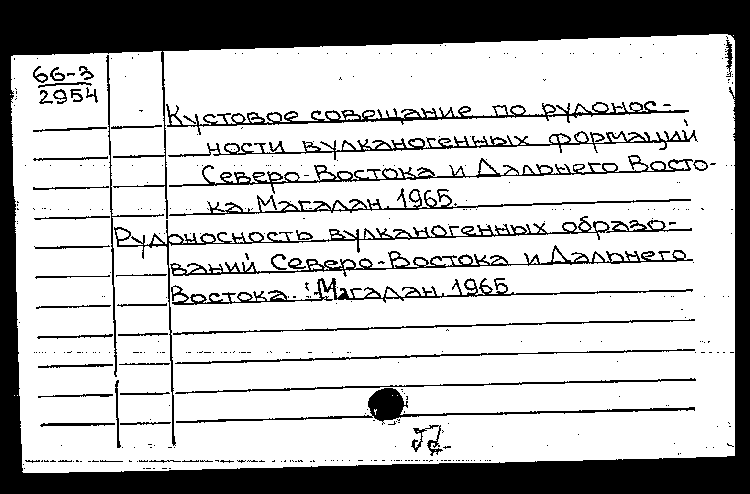 66-3
2954
Кустовое совещание по рудонос-
ности вулканогенных формаций
Северо-Востока и Дальнего Восто-
ка. Магадан. 1965.
Рудоносность вулканогенных образо-
ваний Северо-Востока и Дальнего
Востока. Магадан. 1965.